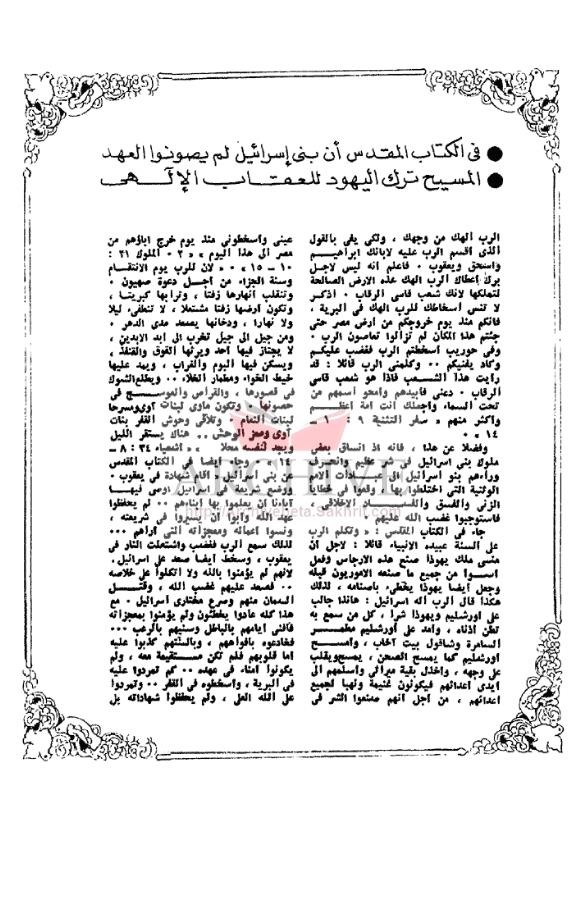 ● في الكتاب المقدس أن بني إسرائيل لم يصونوا العهد
● المسيح ترك اليهود للعقاب الإلهى
الرب الهك من وجهك ، ولكي يفى بالقول
الذى أقسم الرب عليه لآبائك ابراهيم
واسحق ويعقوب . فاعلم أنه ليس لاجل
برك أعطاك الرب الهك هذه الارض الصالحة
لتملكها لأنك شعب قاسى الرقاب . اذكر
لا تنس أسخاطك للرب الهك في البرية ،
فانكم منذ يوم خروجكم من أرض مصر حتى
جئتم هذا المكان لم تزالوا تعاصون الرب .
وفى حوريب أسخطتم الرب فغضب عليكم
وكاد يفنيكم .. وكلمنى الرب قائلا : قد
رايت هذا الشعب فاذا هو شعب قاسى
الرقاب . دعنى فابيدهم وامحو اسمهم من
تحت السماء واجعلك انت امة أعظم
واكثر منهم » سفر التثنية ٩ : ١ ــ
١٤ » .
وفضلا عن هذا ، فانه اذ انساق بعض
ملوك بنى اسرائيل في اثم عظيم وانحرف
وراءهم بنو اسرائيل الى عبادات الأمم
الوثنية التى اختلطوا بها ووقعوا في خطايا
الزنى والفسق والفساد الأخلاقى ،
فاستوجبوا غضب الله عليهم .
جاء في الكتاب المقدس : « وتكلم الرب
على السنة عبيده الانبياء قائلا : لاجل ان
منسى ملك يهوذا صنع هذه الارجاس وفعل
أسوا من جميع ما صنعه الاموريون قبله
وجعل أيضا يهوذا يخطىء باصنامه ، لذلك
هكذا قال الرب اله اسرائيل : هانذا جالب
على اورشليم ويهوذا شرا ، كل من سمع به
تطن اذناه ، وامد على أورشليم مطمار
السامرة وشاقول بيت آخاب ، وأمسح
أورشليم كما يمسح الصحن ، يمسح ويقلب
على وجهه ، واخذل بقية ميراثى وأسلمهم الى
ايدى أعدائهم فيكونون غنيمة ونهبا لجميع
أعدائهم ، من أجل أنهم صنعوا الشر في
عينى وأسخطونى منذ يوم خرج آباؤهم من
مصر الى هذا اليوم » « ٢ ــ الملوك ٢١ :
١٠ ــ ١٥ » . « لان للرب يوم الانتقام
وسنة الجزاء من أجل دعوة صهيون .
وتنقلب انهارها زفتا ، وترابها كبريتا ،
وتكون أرضها زفتا مشتعلا ، لا تنطفىء ليلا
ولا نهارا ، ودخانها يصعد مدى الدهر .
ومن جيل الى جيل تخرب الى ابد الابدين ،
لا يجتاز فيها أحد ويرثها القوق والقنفذ ،
ويسكن فيها البوم والغراب ، ويمد عليها
خيط الخواء ومطمار الخلاء .. ويطلع الشوك
في قصورها ، والقراص والعوسج في
حصونها ، وتكون ماوى لبنات آوى ومسرحا
لبنات النعام . وتلاقى وحوش القفر بنات
آوى ومعز الوحش .. هناك يستقر الليل
ويجد لنفسه محلا .. » أشعياء ٣٤ : ٨ ــ
١٤ » . وجاء أيضا في الكتاب المقدس
ان بنى اسرائيل « أقام شهادة في يعقوب .
ووضع شريعة في اسرائيل أوصى فيها
آباءنا ان يعلموا بها أبناءهم .. لم يحفظوا
عهد الله وأبوا ان يسيروا في شريعته ،
ونسوا أعماله ومعجزاته التى اراهم ...
لذلك سمع الرب فغضب واشتعلت النار في
يعقوب ، وسخط أيضا صعد على اسرائيل .
لانهم لم يؤمنوا بالله ولا اتكلوا على خلاصه
.. فصعد عليهم غضب الله ، وقتل
السمان منهم وصرع مختارى اسرائيل . مع
هذا كله عادوا يخطئون ولم يؤمنوا بمعجزاته
فافنى أيامهم بالباطل وسنيهم بالرعب ...
فخادعوه بافواههم ، وبالسنتهم كذبوا عليه
اما قلوبهم فلم تكن مستقيمة معه ، ولم
يكونوا امناء في عهده .. كم تمردوا عليه
في البرية ، وأسخطوه في القفر .. وتمردوا
على الله العلى ، ولم يحفظوا شهاداته بل
ARCHIVE
http://Archivebeta.Sakhrit.com